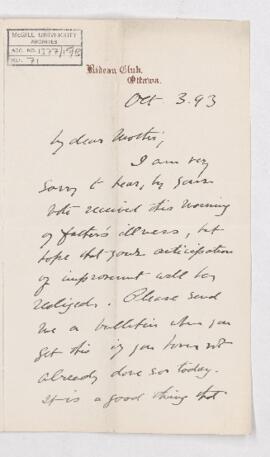 McGILL UNIVERSITY
ARCHIVES
ACC. NO.
REF. 71
Rideau Club,
Ottawa.
Oct 3. 93
My dear Mother,
I am very
sorry to hear, by your
note received this morning
of father's illness, but
hope that your anticipation
of improvement will be
realized. Please send
me a bulletin when you
get this if you have not
already done so today.
It is a good thing that